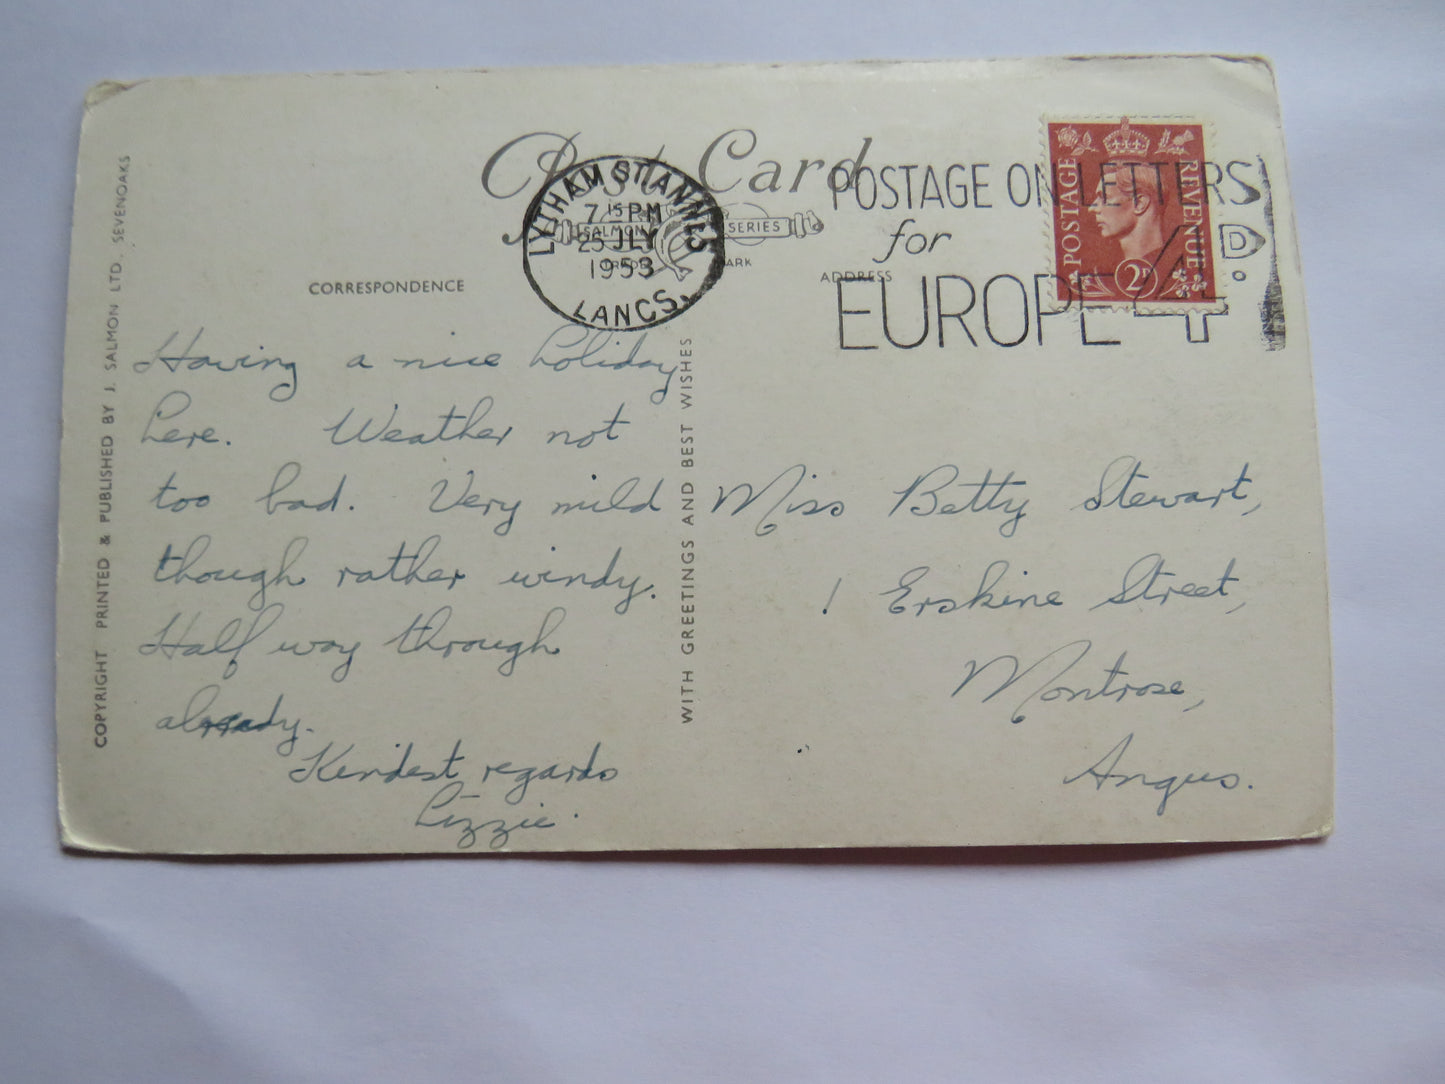 Post Card
LYTHAM ST. ANNES
7 15 PM
25 JLY
1953
LANCS.
SALMON SERIES
MARK
POSTAGE ON LETTERS
for
EUROPE 4D.
POSTAGE REVENUE
2D
CORRESPONDENCE
ADDRESS
COPYRIGHT PRINTED & PUBLISHED BY J. SALMON LTD. SEVENOAKS
Having a nice holiday
here. Weather not
too bad. Very mild
though rather windy.
Half way through
already.
Kindest regards
Lizzie.
WITH GREETINGS AND BEST WISHES
Miss Betty Stewart,
1 Erskine Street,
Montrose,
Angus.